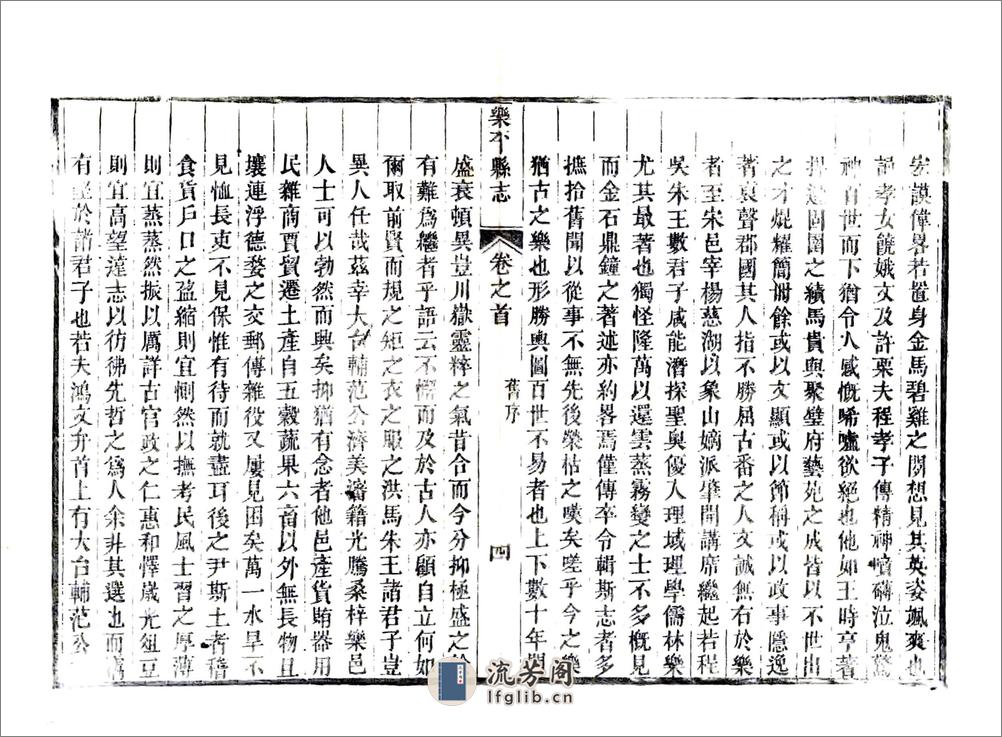 宏謨偉畧若置身金馬碧雞之間想見其英姿颯爽也
孝女饒娥文及許栗夫程孝子傳精神噴礴泣鬼驚
神百世而下猶令人感慨唏嘘欲絕也他如王時亨著
之績馬貴與聚璧府藝苑之成皆以不世出
之才焜耀簡册餘或以文顯或以節稱或以政事隱逸
著袁聲郡國其人指不勝屈古番之人文誠無右於樂
者至宋邑宰楊慈湖以象山嫡派肇開講席繼起若程
吳朱王數君子咸能濳探聖奧優入理域理學儒林樂
尤其最著也獨怪隆萬以還雲蒸霧變之士不多槪見
而金石鼎鐘之著述亦約畧焉僅傳卒令輯斯志者多
摭拾舊聞以從事不無先後榮枯之嘆矣嗟乎今之樂
猶古之樂也形勝輿圖百世不易者也上下數十年間
樂平縣志 卷之首 舊序 四
盛衰頓異豈川嶽靈粹之氣昔合而今分抑極盛之於
有難爲繼者乎語云不懈而及於古人亦顧自立何如
爾取前賢而規之矩之衣之服之洪馬朱王諸君子豈
異人任哉茲幸大台輔范公濟美瀋籍光騰桑梓樂邑
人士可以勃然而興矣抑猶有念者他邑產貨賄器用
民雜商賈貿遷土產自五穀蔬果六畜以外無長物且
壤連浮德婺之交郵傳雜役又屢見困矣萬一水旱不
見恤長吏不見保惟有待而就盡耳後之尹斯土者稽
食貨戶口之盈縮則宜惻然以撫考民風士習之厚薄
則宜蒸蒸然振以厲詳古宦政之仁惠和懌崴光俎豆
則宜高望達志以彷彿先哲之爲人余非其選也而竊
有望於諸君子也若夫鴻文弁首上有大台輔范公
流芳阁
lfglib.cn